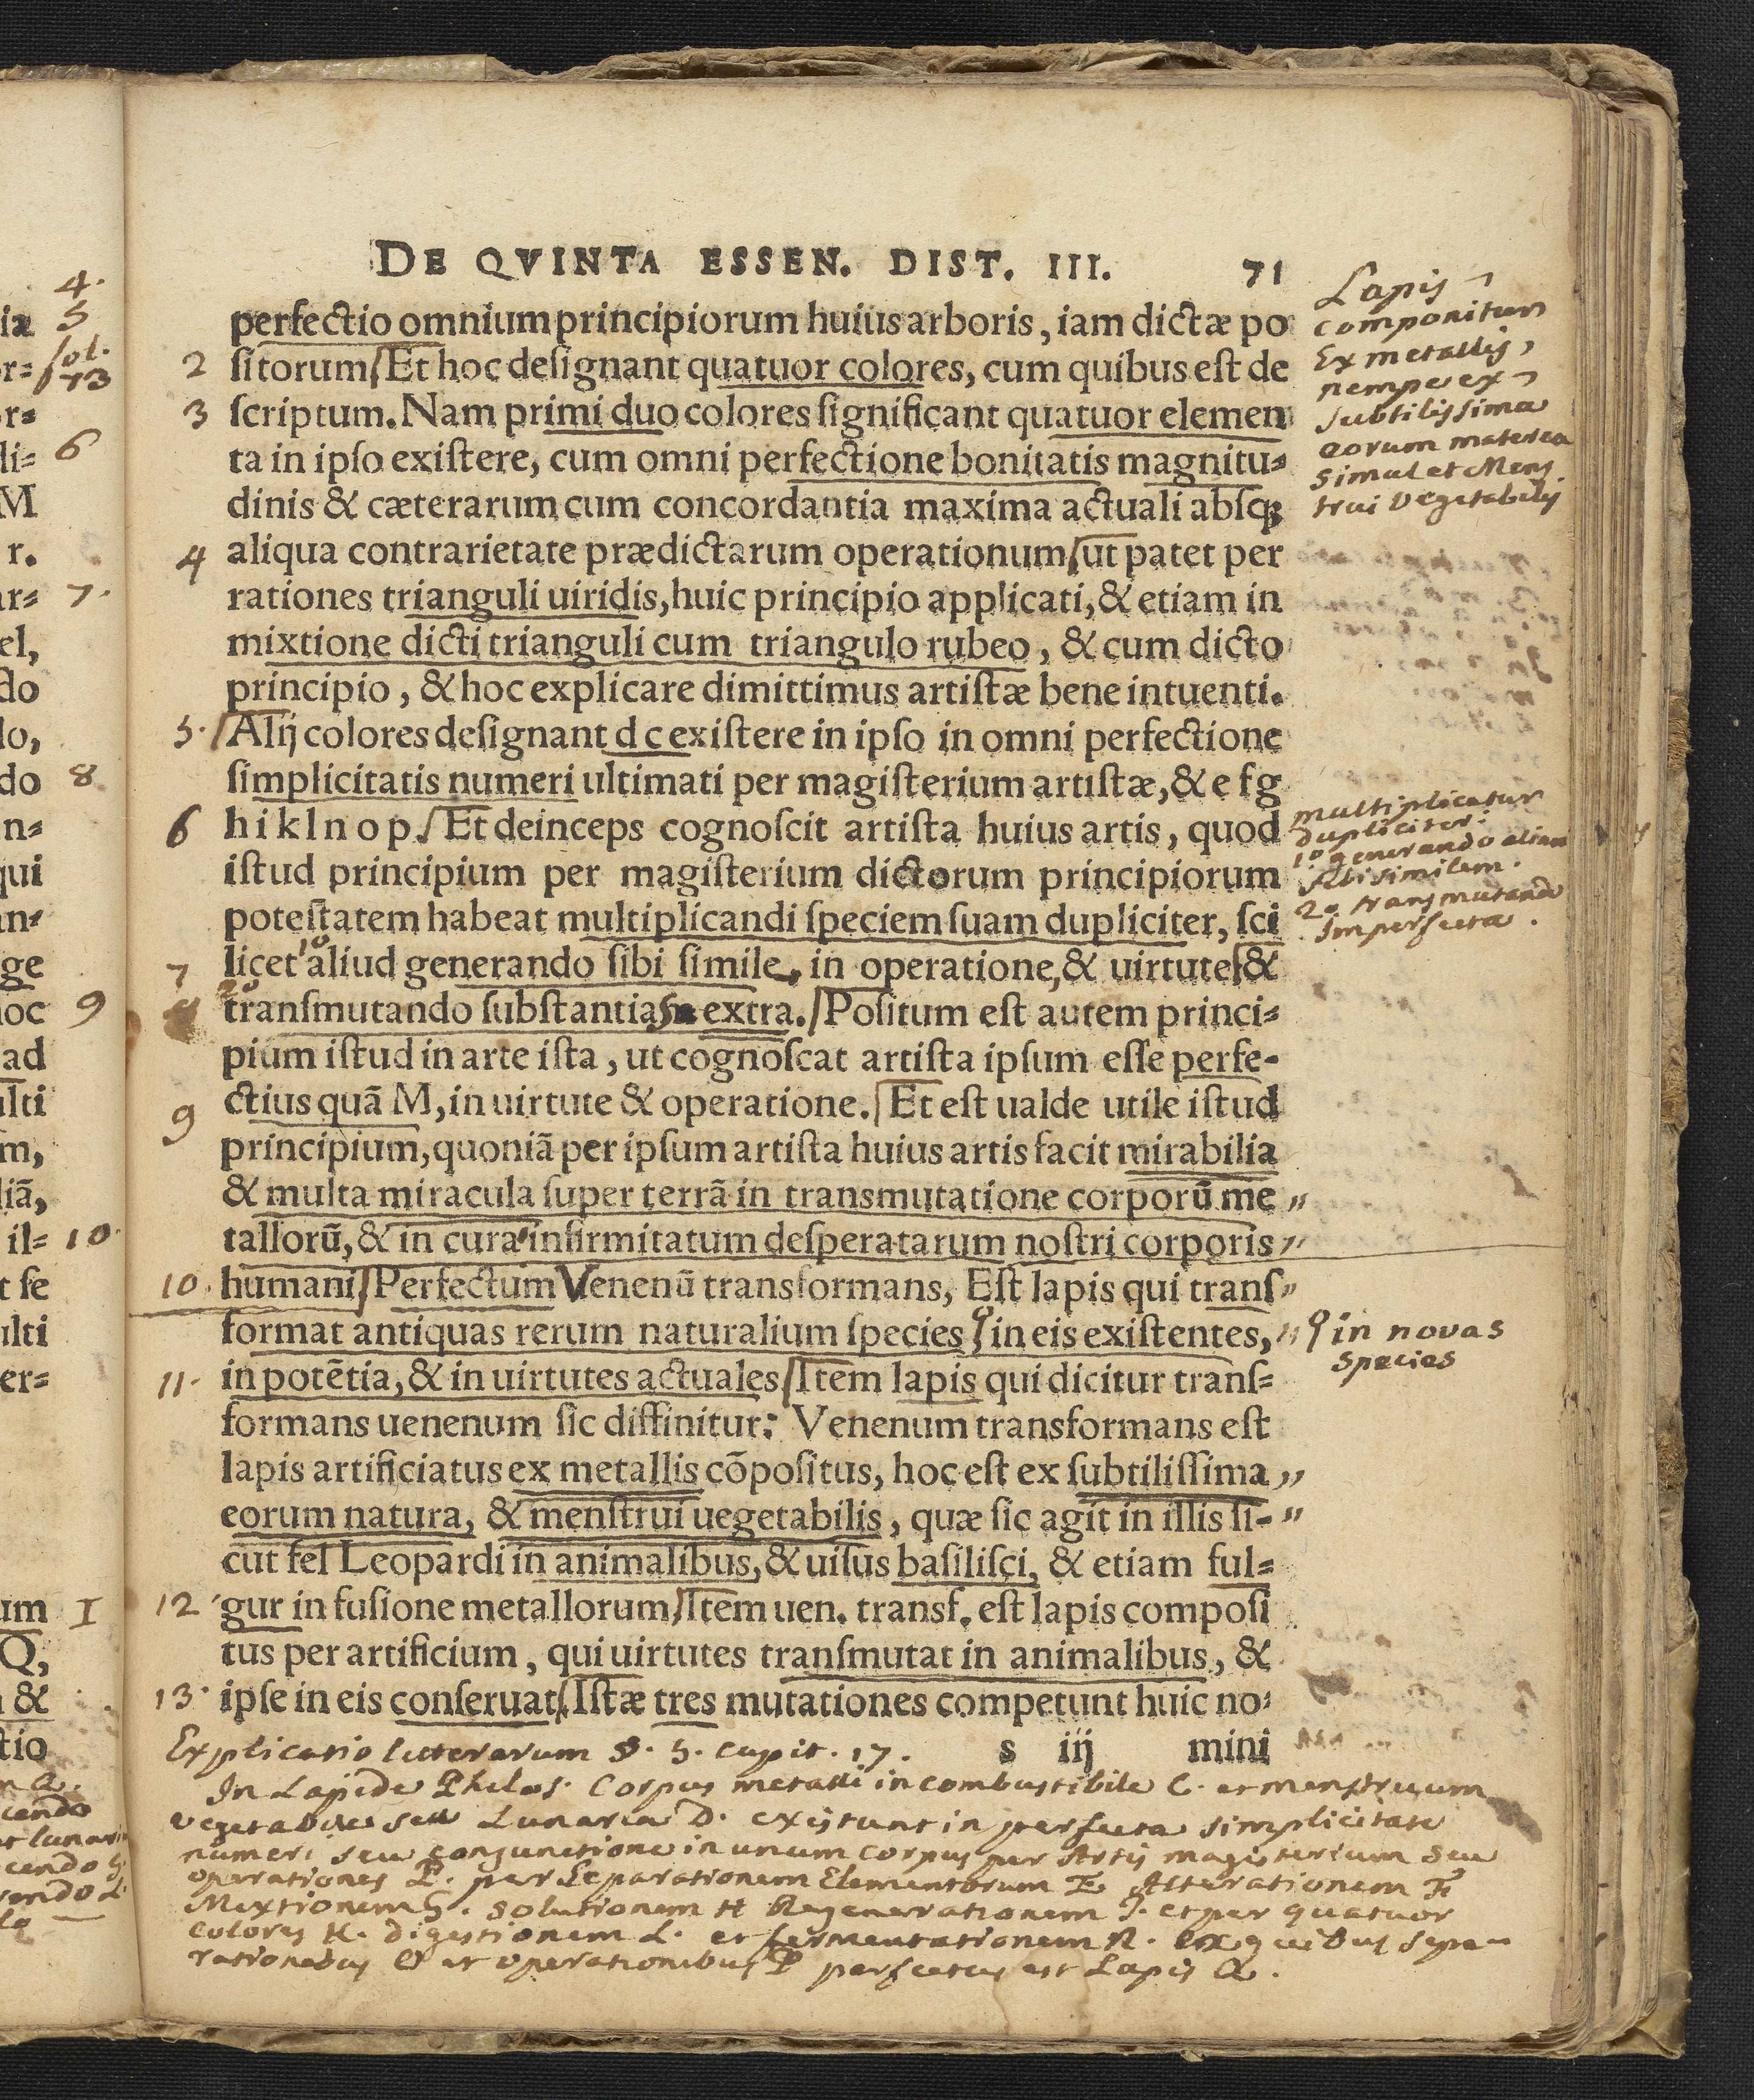 DE QVINTA ESSEN. DIST. III. 71
perfectio omnium principiorum huius arboris, iam dictæ po
2 ſitorum Et hoc deſignant quatuor colores, cum quibus eſt de
3 ſcriptum. Nam primi duo colores ſignificant quatuor elemen
ta in ipſo exiſtere, cum omni perfectione bonitatis magnitu⸗
dinis & cæterarum cum concordantia maxima actuali abſq;
4 aliqua contrarietate prædictarum operationum ut patet per
rationes trianguli uiridis, huic principio applicati, & etiam in
mixtione dicti trianguli cum triangulo rubeo, & cum dicto
principio, & hoc explicare dimittimus artiſtæ bene intuenti.
5. Alij colores deſignant d c exiſtere in ipſo in omni perfectione
ſimplicitatis numeri ultimati per magiſterium artiſtæ, & e f g
6 h i k l n o p. Et deinceps cognoſcit artiſta huius artis, quod
iſtud principium per magiſterium dictorum principiorum
poteſtatem habeat multiplicandi ſpeciem ſuam dupliciter, ſci
7 licet 1º aliud generando ſibi ſimile, in operatione, & uirtute &
2º tranſmutando ſubſtantiam extra. Poſitum eſt autem princi⸗
pium iſtud in arte iſta, ut cognoſcat artiſta ipſum eſſe perfe-
9 ctius quã M, in uirtute & operatione. Et eſt ualde utile iſtud
principium, quoniã per ipſum artiſta huius artis facit mirabilia
& multa miracula ſuper terrã in transmutatione corporũ me "
tallorũ, & in cura infirmitatum deſperatarum noſtri corporis "
10. humani Perfectum Venenũ transformans, Eſt lapis qui tranſ "
format antiquas rerum naturalium ſpecies in eis exiſtentes, "
11. in potẽtia, & in uirtutes actuales Item lapis qui dicitur tranſ⸗
formans uenenum ſic diffinitur: Venenum transformans eſt
lapis artificiatus ex metallis cõpoſitus, hoc eſt ex ſubtiliſſima "
eorum natura, & menſtrui uegetabilis, quæ ſic agit in illis ſi- "
cut fel Leopardi in animalibus, & uiſus baſiliſci, & etiam ful⸗
12 gur in fuſione metallorum Item uen. transf. eſt lapis compoſi
tus per artificium, qui uirtutes tranſmutat in animalibus, &
13. ipſe in eis conſeruat. Iſtæ tres mutationes competunt huic no⸗
s iij mini
Lapis
componitur
Ex metallis,
nempe ex
subtilissima
eorum materia
simul et Mens
trui vegetabilis
multiplicatur
dupliciter:
1º generando alium
sibi similem.
2º transmutando
Imperfecta.
in novas
species
Explicatio litterarum S. 5. capit. 17.
In Lapide Philos. Corpus metalli incombustibile C. et menstruum
vegetabile seu Lunaria D. existunt in perfecta simplicitate
numeri seu conjunctione in unum corpus per Artis magisterium seu
operationes P. per Separationem Elementorum E Alterationem F
Mixtionem G. solutionem H Regenerationem I. et per quatuor
colores K. digestionem L. et fermentationem N. Ex quibus sepa-
rationibus O et operationibus P perfectus est Lapis Q.
4.
5
fol.
73
6
7.
8
9
10
I
iæ
or⸗
r⸗
li⸗
M
r.
ar⸗
el,
do
lo,
do
n⸗
qui
an⸗
ge
hoc
ad
ulti
m,
liã,
il⸗
t ſe
ulti
er⸗
um
Q,
&
tio
cendo